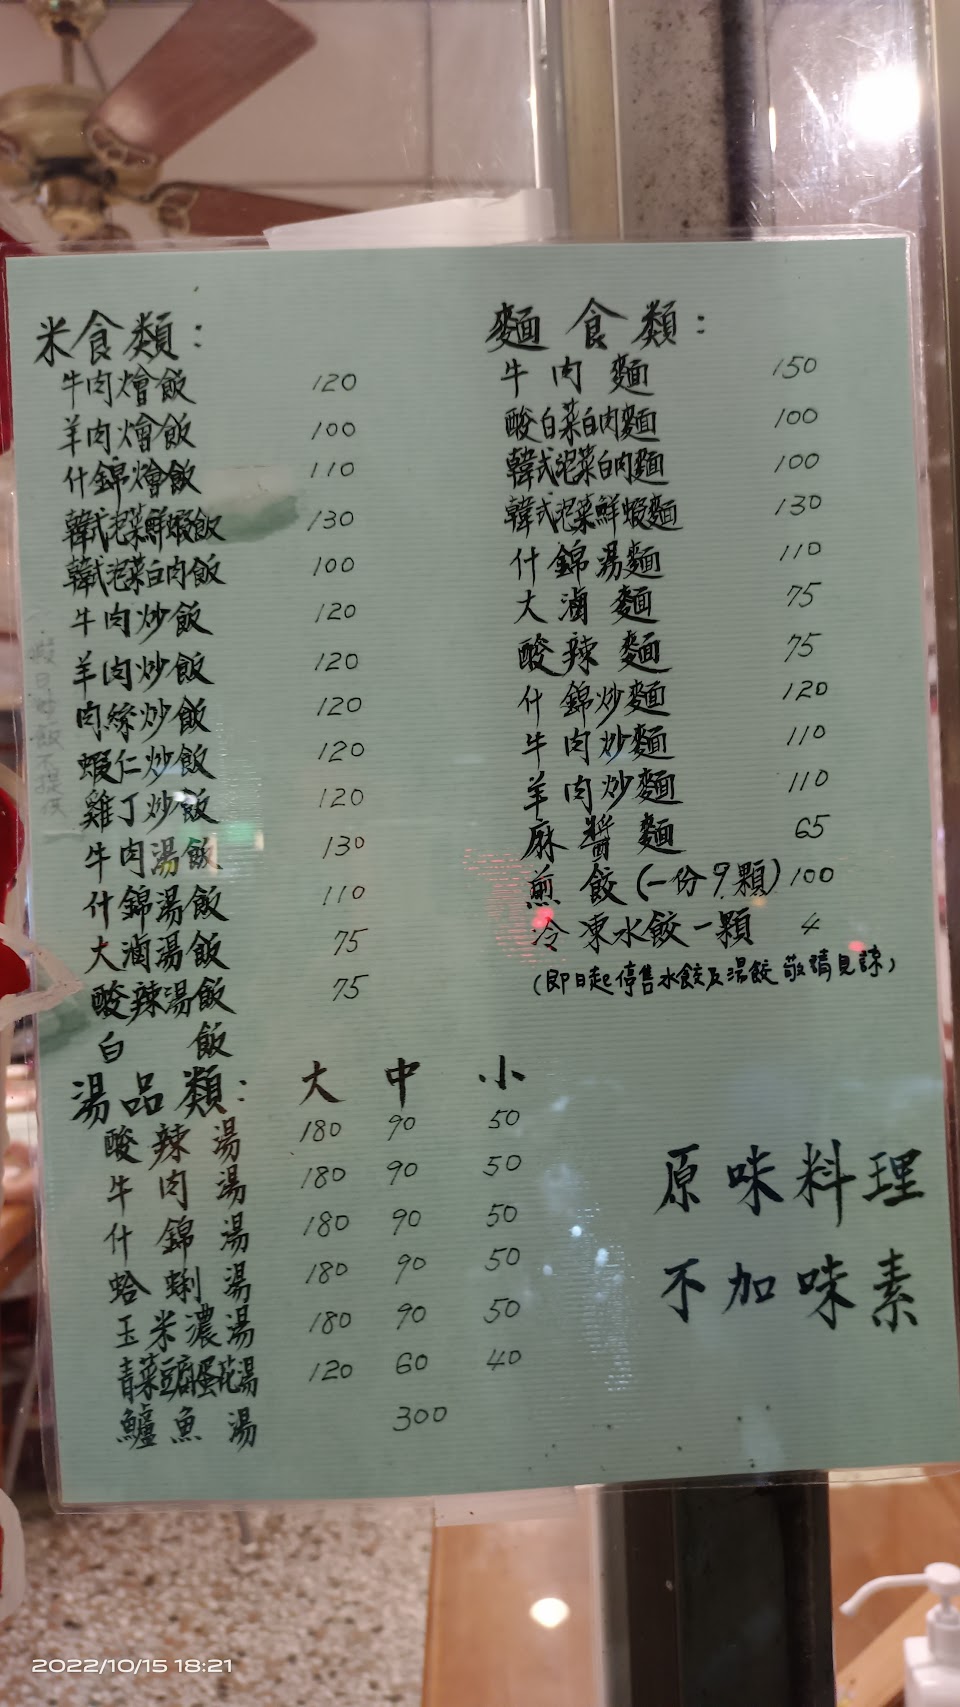 米食類：
牛肉燴飯 120
羊肉燴飯 100
什錦燴飯 110
韓式泡菜鮮蝦飯 130
韓式泡菜白肉飯 100
牛肉炒飯 120
羊肉炒飯 120
肉絲炒飯 120
蝦仁炒飯 120
雞丁炒飯 120
牛肉湯飯 130
什錦湯飯 110
大滷湯飯 75
酸辣湯飯 75
白飯
假日炒飯不提供
麵食類：
牛肉麵 150
酸白菜白肉麵 100
韓式泡菜白肉麵 100
韓式泡菜鮮蝦麵 130
什錦湯麵 110
大滷麵 75
酸辣麵 75
什錦炒麵 120
牛肉炒麵 110
羊肉炒麵 110
麻醬麵 65
煎餃(一份9顆) 100
冷凍水餃一顆 4
(即日起停售水餃及湯餃敬請見諒)
湯品類： 大 中 小
酸辣湯 180 90 50
牛肉湯 180 90 50
什錦湯 180 90 50
蛤蜊湯 180 90 50
玉米濃湯 180 90 50
青菜豆腐蛋花湯 120 60 40
鱸魚湯 300
原味料理
不加味素
2022/10/15 18:21